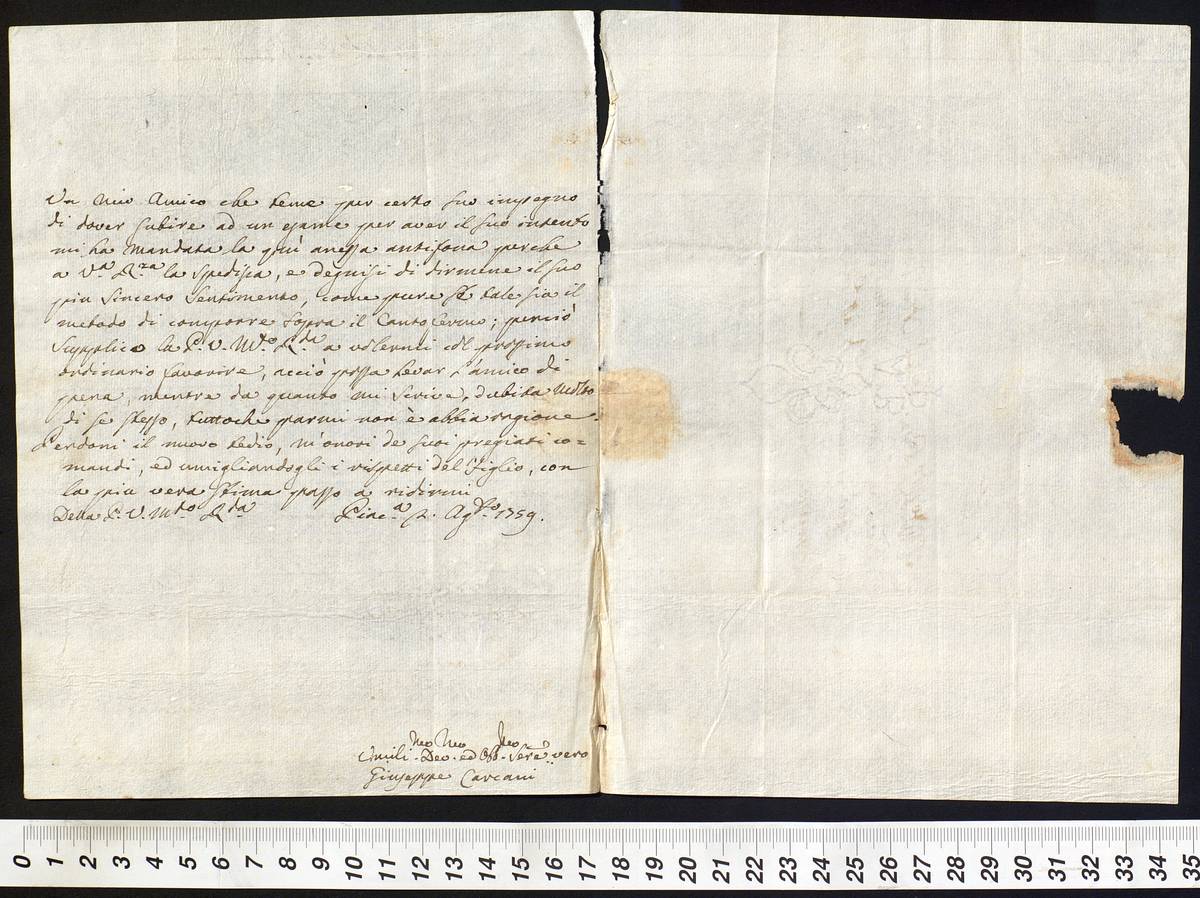 Un mio Amico che teme per certo suo impegno
di dover subire ad un esame per aver il suo intento
mi ha mandata la quì anessa antifona perche
a V.a R.za la spedisca, e degnisi di dirmene il suo
più sincero sentimento, come pure se tale sia il
metodo di comporre sopra il Canto fermo; perciò
supplico la P. V. M.to R.da a volermi col prossimo
ordinario favorire, acciò possa levar l'amico di
pena, mentre da quanto mi scrive, dubita molto
di se stesso, tuttoche parmi non è abbia ragione.
Perdoni il nuovo tedio, m'onori de suoi pregiati co=
mandi, ed umigliandogli i rispetti del figlio, con
la più vera stima passo a ridirmi
Della P. V. M.to R.da Piac.a 2. Ag.to 1759.
Umili.mo Dev.mo ed Obb.mo Serv.e vero
Giuseppe Carcani
0 1 2 3 4 5 6 7 8 9 10 11 12 13 14 15 16 17 18 19 20 21 22 23 24 25 26 27 28 29 30 31 32 33 34 35